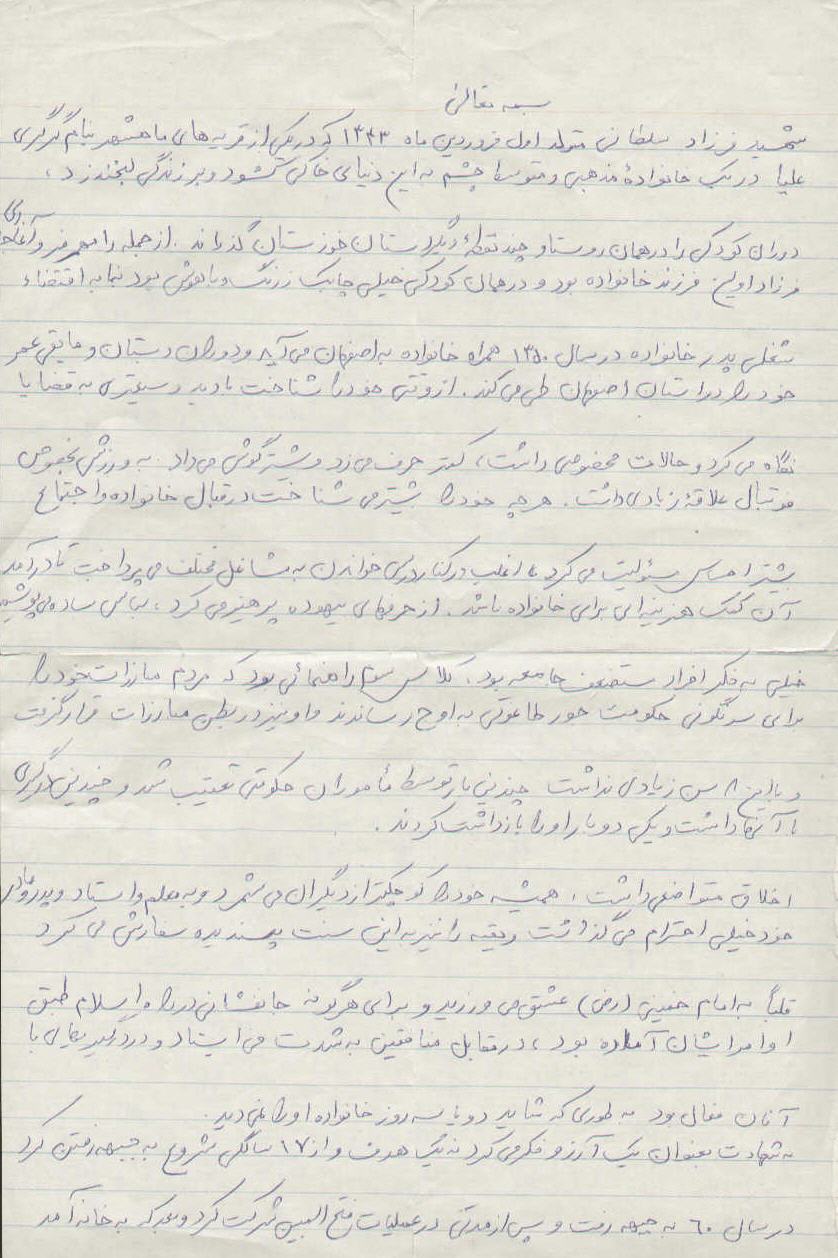 بسمه تعالی
شهید فرزاد سلطانی متولد اول فروردین ماه ۱۳۴۳ که در یکی از قریه های ماهشهر بنام گرگری
علیا در یک خانوادهٔ مذهبی و متوسط چشم به این دنیای خاکی گشود و بر زندگی لبخند زد،
دوران کودکی را در همان روستا و چند نقطهٔ دیگر استان خوزستان گذراند. از جمله رامهرمز و آغاجاری
فرزاد اولین فرزند خانواده بود و در همان کودکی خیلی چابک زرنگ و باهوش بود بنا به اقتضاء
شغلی پدر خانواده در سال ۱۳۵۰ همراه خانواده به اصفهان می آید و دوران دبستان و مابقی عمر
خود را در استان اصفهان طی می کند. از وقتی خود را شناخت با دید وسیعتری به قضایا
نگاه می کرد و حالات مخصوصی داشت، کمتر حرف می زد و بیشتر گوش می داد. به ورزش بخصوص
فوتبال علاقهٔ زیادی داشت. هر چه خود را بیشتر می شناخت در قبال خانواده و اجتماع
بیشتر احساس مسئولیت می کرد، اغلب در کنار درس خواندن به مشاغل مختلف می پرداخت تا درآمد
آن کمک هزینه ای برای خانواده باشد. از حرفهای بیهوده پرهیز می کرد، لباس ساده می پوشید
خیلی به فکر افراد مستضعف جامعه بود. کلاس سوم راهنمائی بود که مردم مبارزات خود را
برای سرنگونی حکومت جور طاغوتی به اوج رساندند و او نیز در بطن مبارزات قرار گرفت
و با این ۸ سن زیادی نداشت چندین بار توسط مأموران حکومتی تعقیب شد و چندین درگیری
با آنها داشت و یکی دو بار او را بازداشت کردند.
اخلاق متواضعی داشت، همیشه خود را کوچکتر از دیگران می شمرد و به معلم و استاد و پدر و مادر
خود خیلی احترام می گذاشت و بقیه را نیز به این سنت پسندیده سفارش می کرد
قلباً به امام خمینی (رض) عشق می ورزید و برای هرگونه جانفشانی در راه اسلام طبق
اوامر ایشان آماده بود، در مقابل منافقین به شدت می ایستاد و در درگیریهای با
آنان فعال بود به طوری که شاید دو یا سه روز خانواده او را نمی دید.
به شهادت بعنوان یک آرزو فکر می کرد نه یک هدف و از ۱۷ سالگی شروع به جبهه رفتن کرد
در سال ۶۰ به جبهه رفت و پس از مدتی در عملیات فتح المبین شرکت کرد و بعد که به خانه آمد